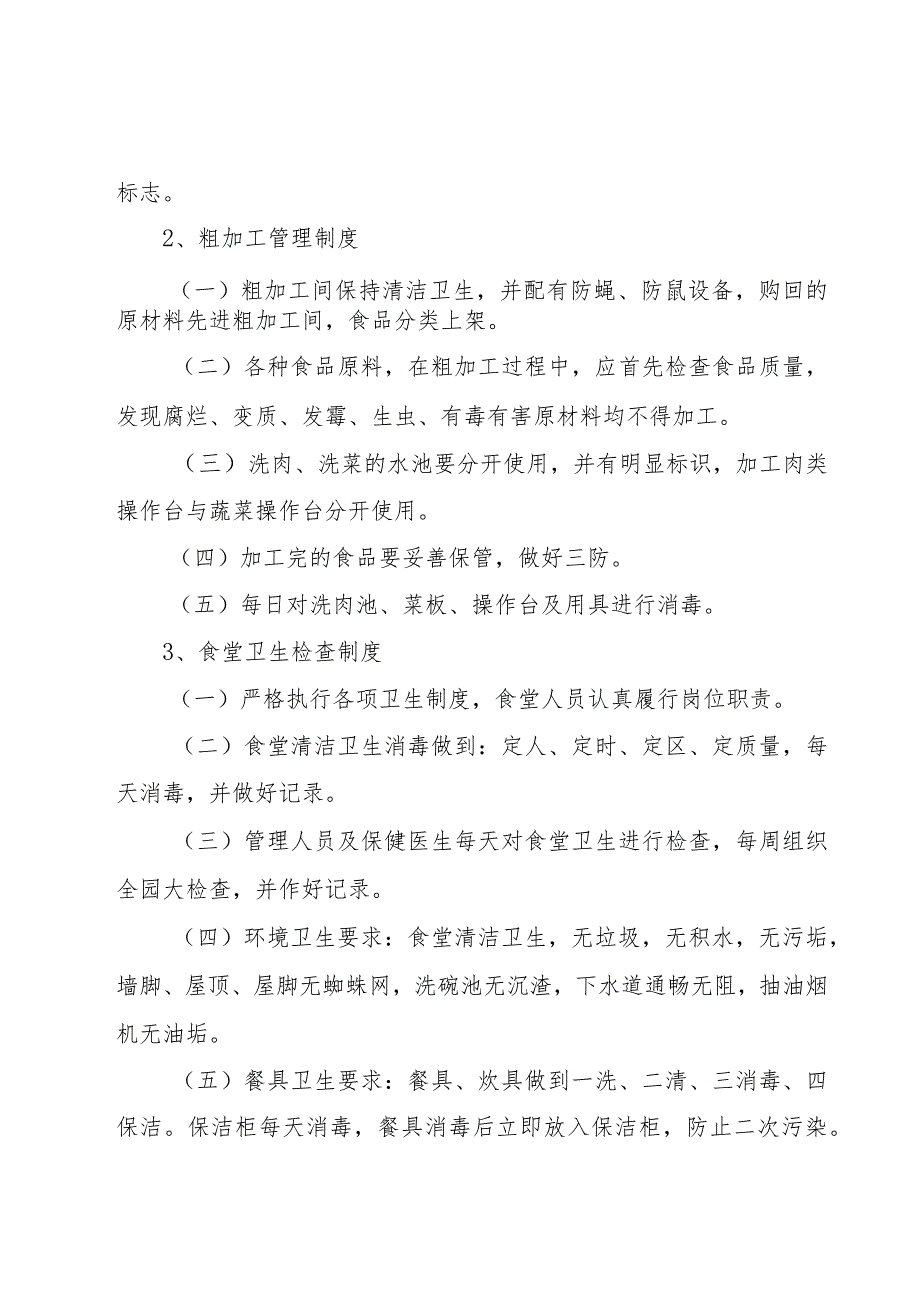 标志。
2、粗加工管理制度
（一）粗加工间保持清洁卫生，并配有防蝇、防鼠设备，购回的
原材料先进粗加工间，食品分类上架。
（二）各种食品原料，在粗加工过程中，应首先检查食品质量，
发现腐烂、变质、发霉、生虫、有毒有害原材料均不得加工。
（三）洗肉、洗菜的水池要分开使用，并有明显标识，加工肉类
操作台与蔬菜操作台分开使用。
（四）加工完的食品要妥善保管，做好三防。
（五）每日对洗肉池、菜板、操作台及用具进行消毒。
3、食堂卫生检查制度
（一）严格执行各项卫生制度，食堂人员认真履行岗位职责。
（二）食堂清洁卫生消毒做到：定人、定时、定区、定质量，每
天消毒，并做好记录。
（三）管理人员及保健医生每天对食堂卫生进行检查，每周组织
全园大检查，并作好记录。
（四）环境卫生要求：食堂清洁卫生，无垃圾，无积水，无污垢，
墙脚、屋顶、屋脚无蜘蛛网，洗碗池无沉渣，下水道通畅无阻，抽油烟
机无油垢。
（五）餐具卫生要求：餐具、炊具做到一洗、二清、三消毒、四
保洁。保洁柜每天消毒，餐具消毒后立即放入保洁柜，防止二次污染。